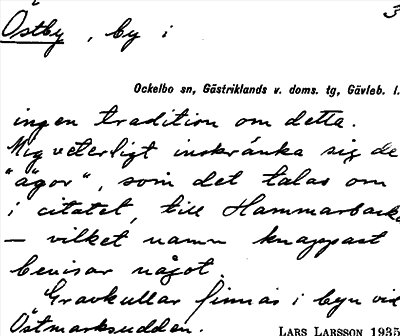 3
Östby, by i
Ockelbo sn, Gästriklands v. doms. tg, Gävleb. l.
ingen tradition om detta.
Mig veterligt inskränka sig de
"ägor", som det talas om
i citatet, till Hammarbacka
– vilket namn knappast
bevisar något.
Gravkullar finnas i byn vid
Östmarksudden.
LARS LARSSON 1935